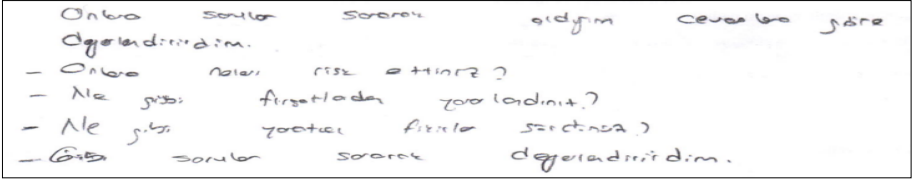 Onlara sorular sorarak aldığım cevaplara göre
değerlendirirdim.
- Onlara neleri risk ettiniz?
- Ne gibi fırsatlardan yararlandınız?
- Ne gibi yaratıcı fikirler sürdünüz?
- Gibi sorular sorarak değerlendirirdim.